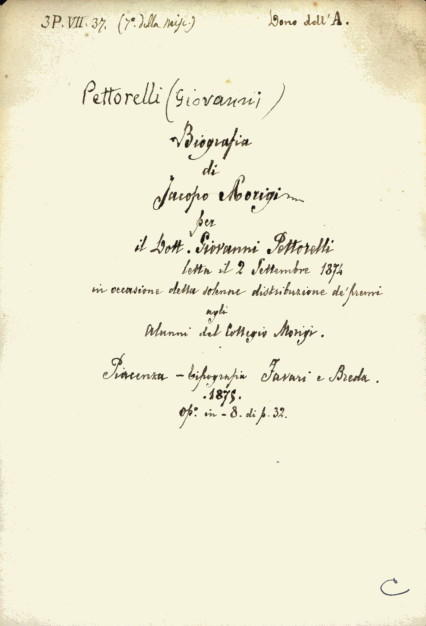 3P. VII. 37. (7º della misc.) Dono dell'A.
Pettorelli (Giovanni)
Biografia
di
Jacopo Morigi
per
il Dott. Giovanni Pettorelli
letta il 2 Settembre 1874
in occasione della solenne distribuzione de' premi
agli
Alunni del Collegio Morigi.
Piacenza - Tipografia Favari e Breda.
.1875.
opº. in - 8. di p. 32.
C